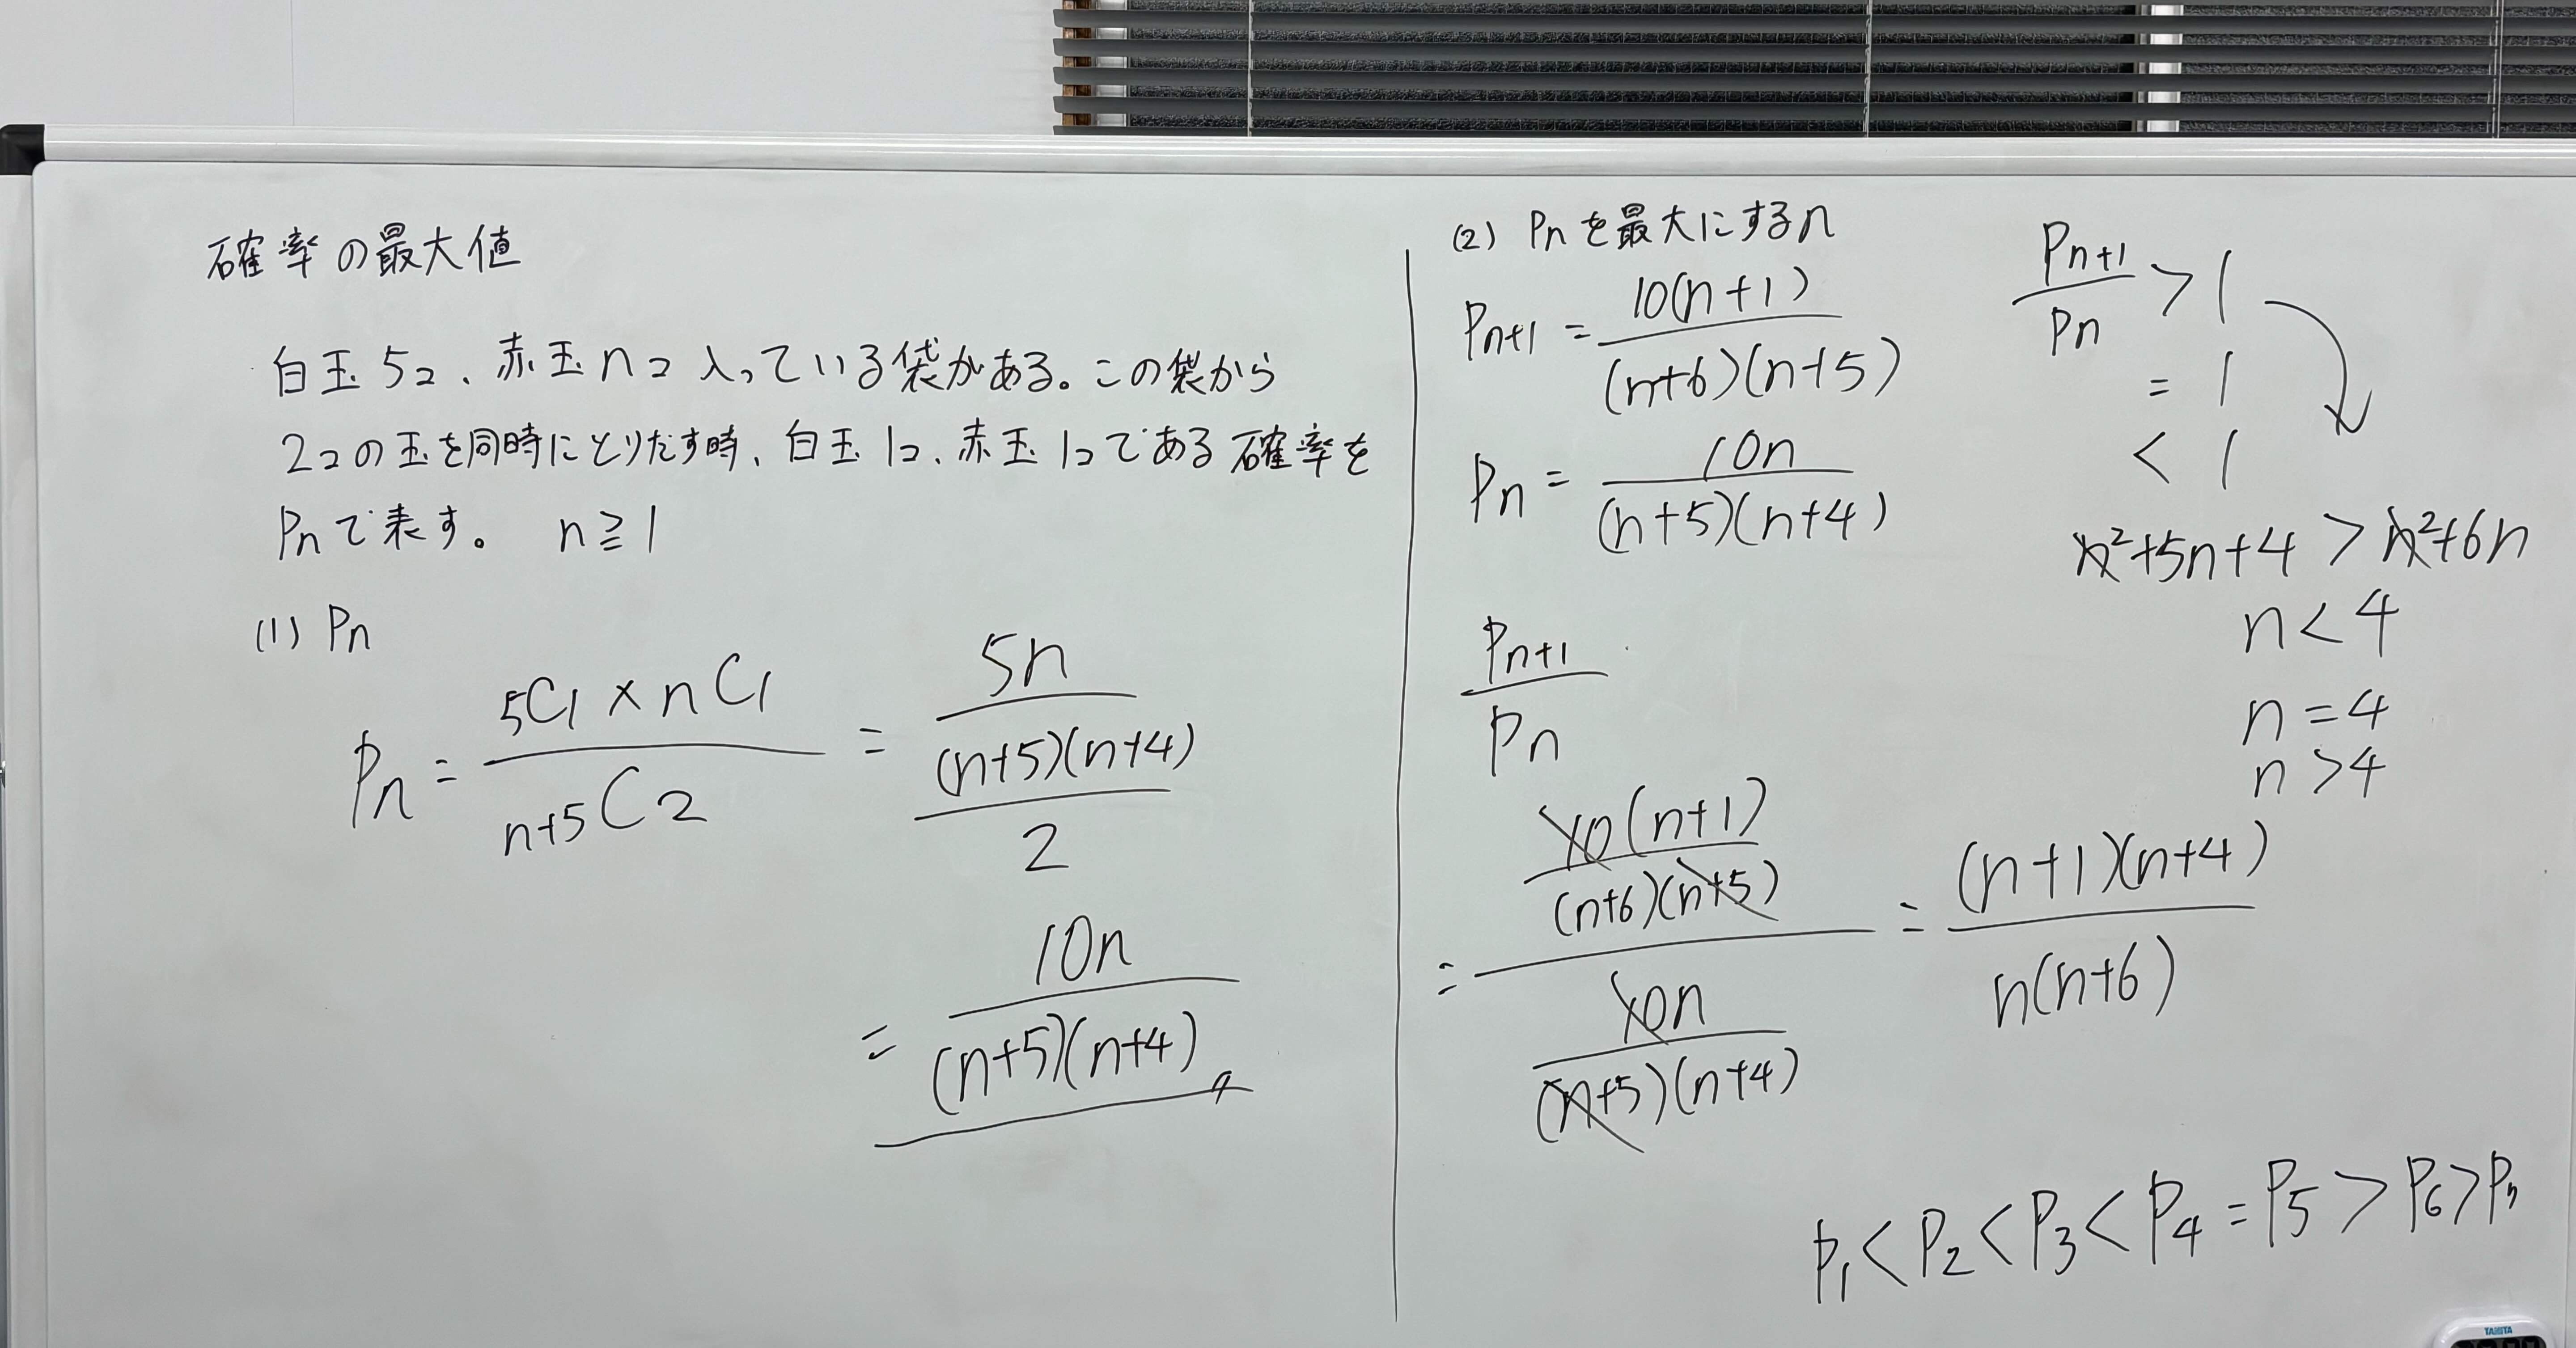 確率の最大値
白玉5コ、赤玉nコ入っている袋がある。この袋から
2コの玉を同時にとりだす時、白玉1コ、赤玉1コである確率を
Pnで表す。 n≧1
(1) Pn
Pn = 5C1 × nC1 / n+5C2 = 5n / ((n+5)(n+4) / 2)
= 10n / (n+5)(n+4)
(2) Pnを最大にするn
Pn+1 = 10(n+1) / (n+6)(n+5)
Pn = 10n / (n+5)(n+4)
Pn+1 / Pn
= (10(n+1) / (n+6)(n+5)) / (10n / (n+5)(n+4)) = (n+1)(n+4) / n(n+6)
Pn+1 / Pn > 1
= 1
< 1
n²+5n+4 > n²+6n
n < 4
n = 4
n > 4
P1 < P2 < P3 < P4 = P5 > P6 > P
TANITA